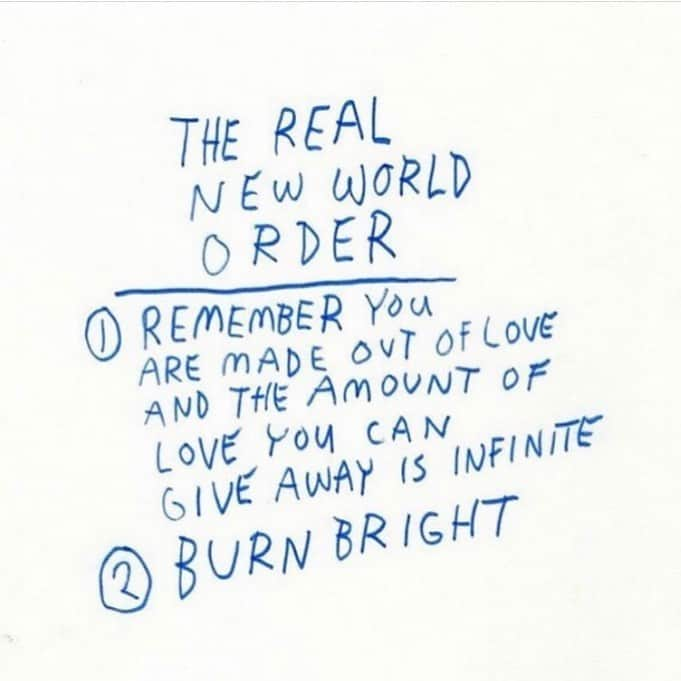 THE REAL
NEW WORLD
ORDER
① REMEMBER YOU
ARE MADE OUT OF LOVE
AND THE AMOUNT OF
LOVE YOU CAN
GIVE AWAY IS INFINITE
② BURN BRIGHT